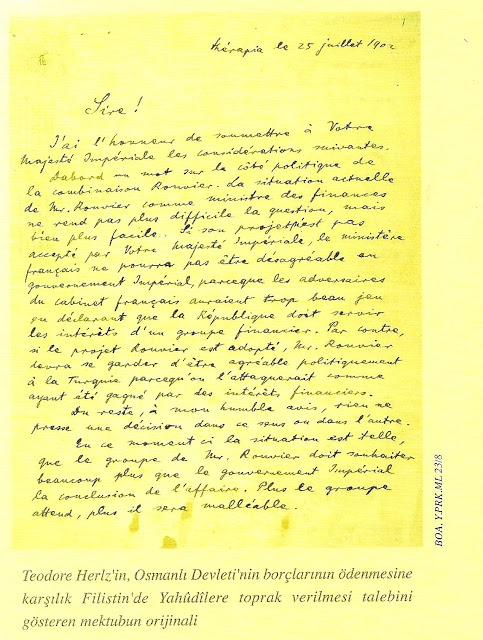 thérapia le 25 juillet 1902
Sire!
J'ai l'honneur de soumettre à Votre
Majesté Impériale les considérations suivantes.
Dabord un mot sur le côté politique de
la combinaison Rouvier. La situation actuelle
de Mr. Rouvier comme ministre des finances
ne rend pas plus difficile la question, mais
bien plus facile. Si son projet n'est pas
accepté par Votre Majesté Impériale, le ministère
français ne pourra pas être désagréable au
gouvernement Impérial, parceque les adversaires
du cabinet français auraient trop beau jeu
en déclarant que la République doit servir
les intérêts d'un groupe financier. Par contre,
si le projet Rouvier est adopté, Mr. Rouvier
devra se garder d'être agréable politiquement
à la Turquie parcequ'on l'attaquerait comme
ayant été gagné par des intérêts financiers.
Du reste, à mon humble avis, rien ne
presse une décision dans ce sens ou dans l'autre.
En ce moment ci la situation est telle,
que le groupe de Mr. Rouvier doit souhaiter
beaucoup plus que le gouvernement Impérial
la conclusion de l'affaire. Plus le groupe
attend, plus il sera malléable.
BOA. Y.PRK.ML 23/8
Teodore Herlz'in, Osmanlı Devleti'nin borçlarının ödenmesine
karşılık Filistin'de Yahûdîlere toprak verilmesi talebini
gösteren mektubun orijinali